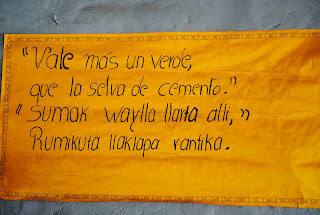 "Vale más un verde,
que la selva de cemento."
"Sumak waylla llakta alli,"
Rumikuta llaktapa rantika.